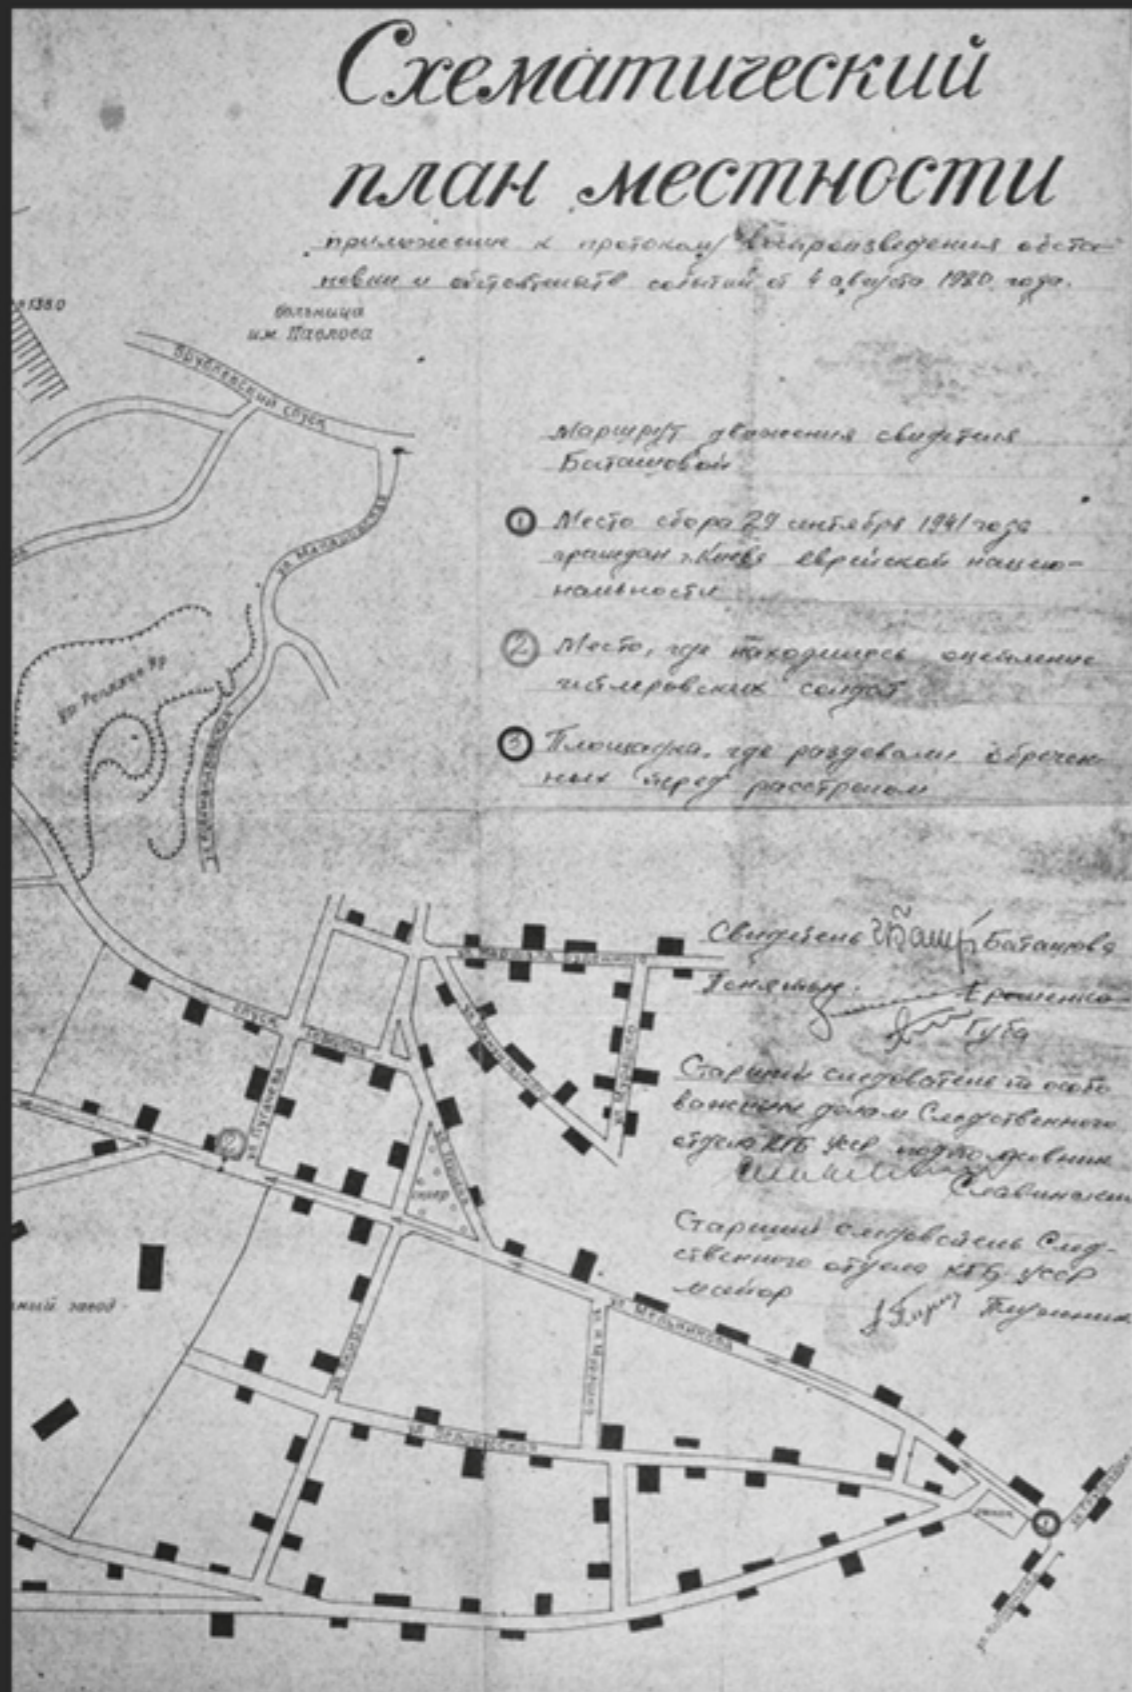 Схематический
план местности
приложение к протоколу воспроизведения обста-
новки и обстоятельств событий от 4 августа 1980 года.
1380
больница
им. Павлова
Врублевский спуск
Маршрут движения свидетеля
Баташовой
1 Место сбора 29 сентября 1941 года
граждан г. Киева еврейской нацио-
нальности
2 Место, где находилось оцепление
гитлеровских солдат
3 Площадка, где раздевали обречен-
ных перед расстрелом
ур. Репяхов Яр
Свидетель Баташова
Понятые: Ерошенко
Губа
спуск
ул. Пугачева
2
Старший следователь по особо
важным делам Следственного
отдела КГБ УССР подполковник
сквер
Старший следователь След-
ственного отдела КГБ УССР
майор
завод
ул. Мельникова
1